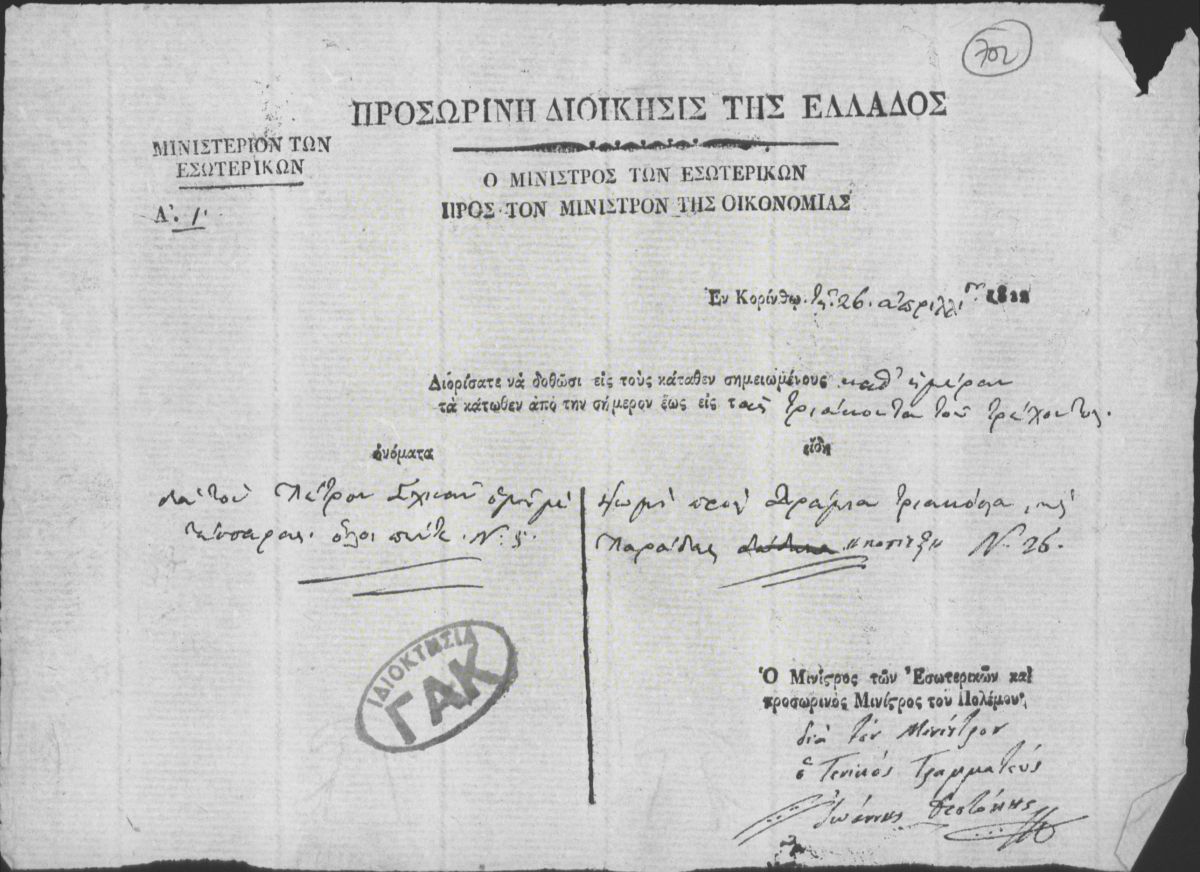 702
ΠΡΟΣΩΡΙΝΗ ΔΙΟΙΚΗΣΙΣ ΤΗΣ ΕΛΛΑΔΟΣ
ΜΙΝΙΣΤΕΡΙΟΝ ΤΩΝ
ΕΣΩΤΕΡΙΚΩΝ
Ο ΜΙΝΙΣΤΡΟΣ ΤΩΝ ΕΣΩΤΕΡΙΚΩΝ
ΠΡΟΣ ΤΟΝ ΜΙΝΙΣΤΡΟΝ ΤΗΣ ΟΙΚΟΝΟΜΙΑΣ
Α'. 1.
Ἐν Κορίνθῳ. τῇ 26. ἀπριλλίου 1822
Διορίσατε νὰ δοθῶσι εἰς τοὺς κάταθεν σημειωμένους καθ' ἡμέραν
τὰ κάτωθεν ἀπὸ την σήμερον ἕως εἰς τὰς τριάκοντα τοῦ τρέχοντος.
ὀνόματα
εἴδη
Πέτρον
τέσσαρας. ὅλοι πέντε. Ν: 5.
Ψωμὶ πρὸς δράμια τριακόσια
Παράδες Ν. 26.
ΙΔΙΟΚΤΗΣΙΑ
ΓΑΚ
Ὁ Μινίστρος τῶν Ἐσωτερικῶν καὶ
προσωρινὸς Μινίστρος του Πολέμου,
διὰ τὸν Μινίστρον
ὁ Γενικὸς Γραμματεὺς
Ἰωάννης